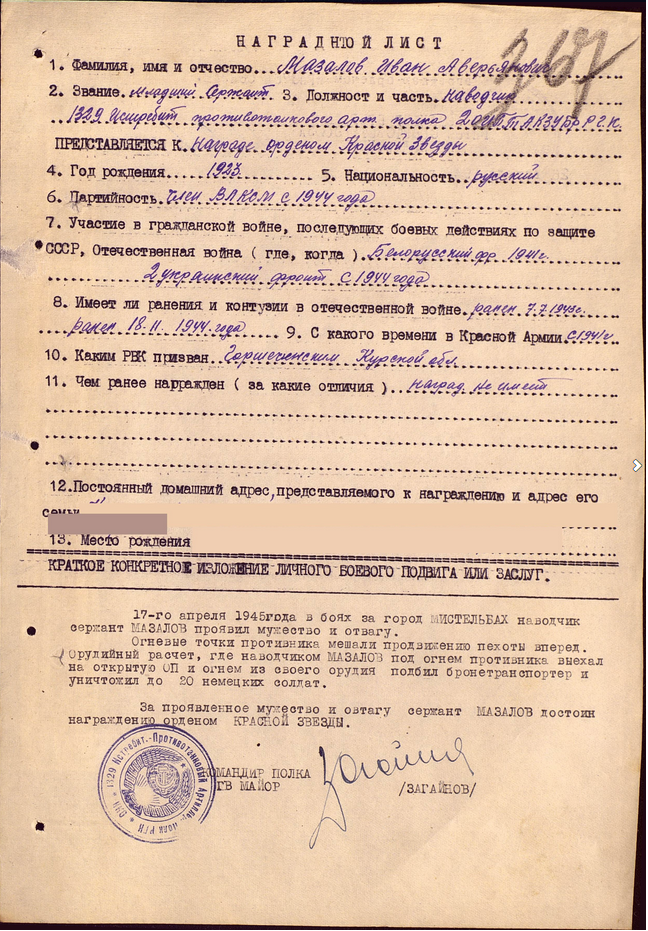 НАГРАДНОЙ ЛИСТ
1. Фамилия, имя и отчество...Мазалов Иван Аверьянович
2. Звание.младший Сержант. 3. Должность и часть.наводчик
1329 Истребит противотанкового арт. полка
ПРЕДСТАВЛЯЕТСЯ К.награде орденом Красной Звезды
4. Год рождения.....1923.....5. Национальность..русский
6. Партийность.Член ВЛКСМ с 1944 года
7. Участие в гражданской войне, последующих боевых действиях по защите
СССР, Отечественная война ( где, когда ).Белорусский фр 1941г.
2 украинский фронт с 1944 года
8. Имеет ли ранения и контузии в отечественной войне.ранен 7.7.1943г.
ранен 18.11.1944 года.... 9. С какого времени в Красной Армии с 1941г
10. Каким РВК призван.Горшеченским Курской обл.
11. Чем ранее награжден ( за какие отличия )..наград не имеет
12.Постоянный домашний адрес,представляемого к награждению и адрес его
семьи
13. Место рождения
КРАТКОЕ КОНКРЕТНОЕ ИЗЛОЖЕНИЕ ЛИЧНОГО БОЕВОГО ПОДВИГА ИЛИ ЗАСЛУГ.
17-го апреля 1945года в боях за город МИСТЕЛЬБАХ наводчик
сержант МАЗАЛОВ проявил мужество и отвагу.
Огневые точки противника мешали продвижению пехоты вперед.
Орудийный расчет, где наводчиком МАЗАЛОВ под огнем противника выехал
на открытую ОП и огнем из своего орудия подбил бронетранспортер и
уничтожил до 20 немецких солдат.
За проявленное мужество и овтагу сержант МАЗАЛОВ достоин
награждению орденом КРАСНОЙ ЗВЕЗДЫ.
КОМАНДИР ПОЛКА
ГВ МАЙОР
/ЗАГАЙНОВ/
1329 Истребит.-Противотанковый Артиллер. полк РГК